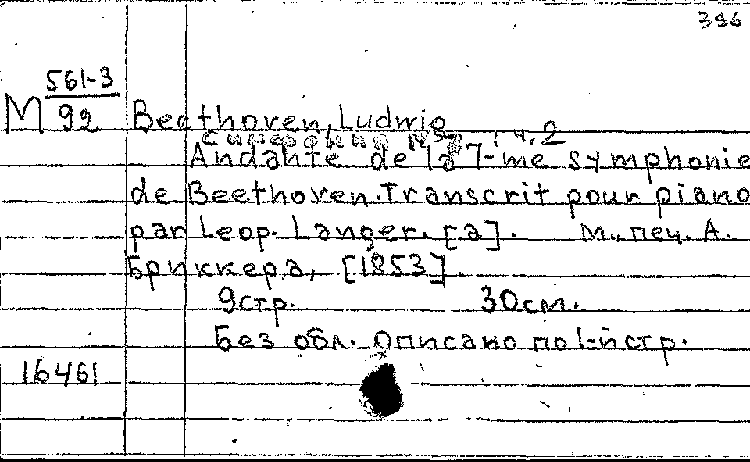 396
M 561-3
92
Beethoven, Ludwig
Симфония № 7, ч. 2
Andante de la 7-me symphonie
de Beethoven. Transcrit pour piano
par Leop. Langer. [a]. М., печ. А.
Бриккера, [1853].
9стр. 30см.
Без обл. Описано по 1-й стр.
16461